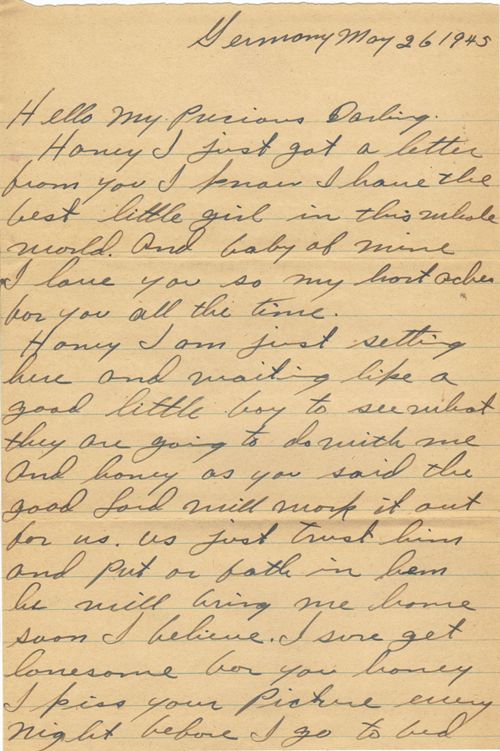 Germany May 26 1945
Hello My Precious Darling.
Honey I just got a letter
from you I know I have the
best little girl in this whole
world. And baby of mine
I love you so my hort aches
for you all the time.
Honey I am just setting
here and waiting like a
good little boy to see what
they are going to do with me
And honey as you said the
good Lord will work it out
for us. us just trust him
and put or fath in hem
he will bring me home
soon I believe. I sure get
lonesome for you honey
I kiss your Picture every
night before I go to bed